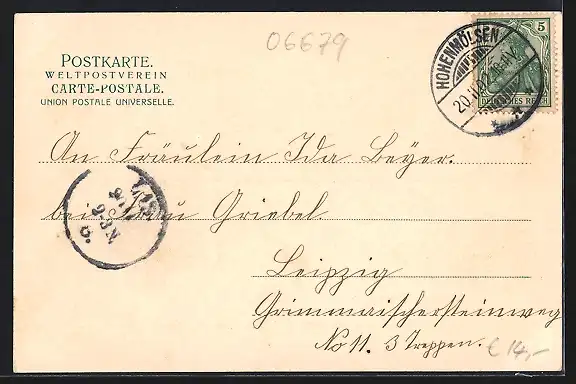 06679
POSTKARTE.
WELTPOSTVEREIN
CARTE-POSTALE.
UNION POSTALE UNIVERSELLE.
HOHENMÖLSEN
20.
5
DEUTSCHES REICH
An Fräulein Ida Beyer.
bei Frau Griebel
Leipzig
Grimmaischersteinweg
No 11. 3 Treppen.
€ 14,-